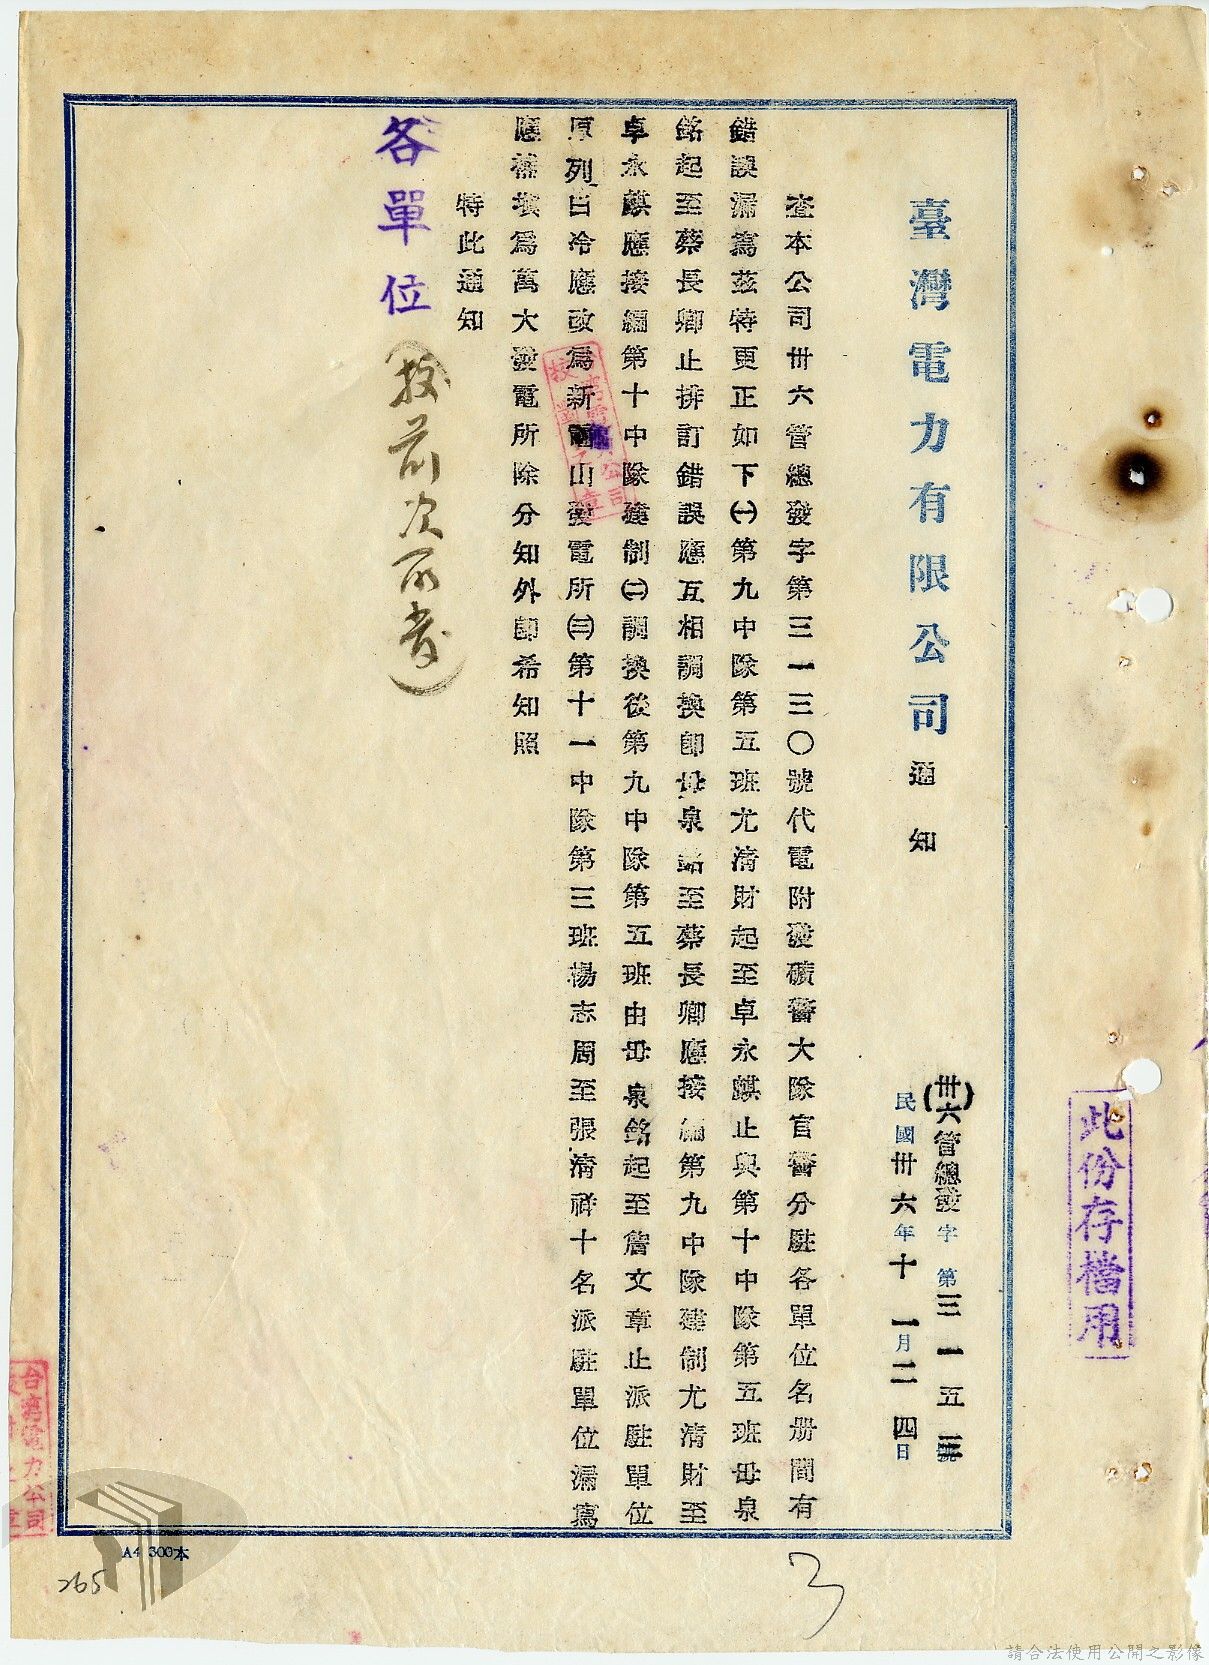 臺灣電力有限公司通知
(卅六)管總發字第三一五三號
民國卅六年十一月二四日
查本公司卅六管總發字第三一三〇號代電附發礦警大隊官警分駐各單位名册間有
錯誤漏寫茲特更正如下㈠第九中隊第五班尤清財起至卓永麒止與第十中隊第五班毋泉
銘起至蔡長卿止排訂錯誤應互相調換卽毋泉銘至蔡長卿應接編第九中隊建制尤清財至
卓永麒應接編第十中隊建制㈡調換後第九中隊第五班由毋泉銘起至詹文章止派駐單位
原列日冷應改為新龜山發電所㈢第十一中隊第三班楊志周至張清祥十名派駐單位漏寫
應補填為萬大發電所除分知外卽希知照
特此通知
各單位(按前次所發)
此份存檔用
台灣電力公司
A4 300本
265
3
請合法使用公開之影像